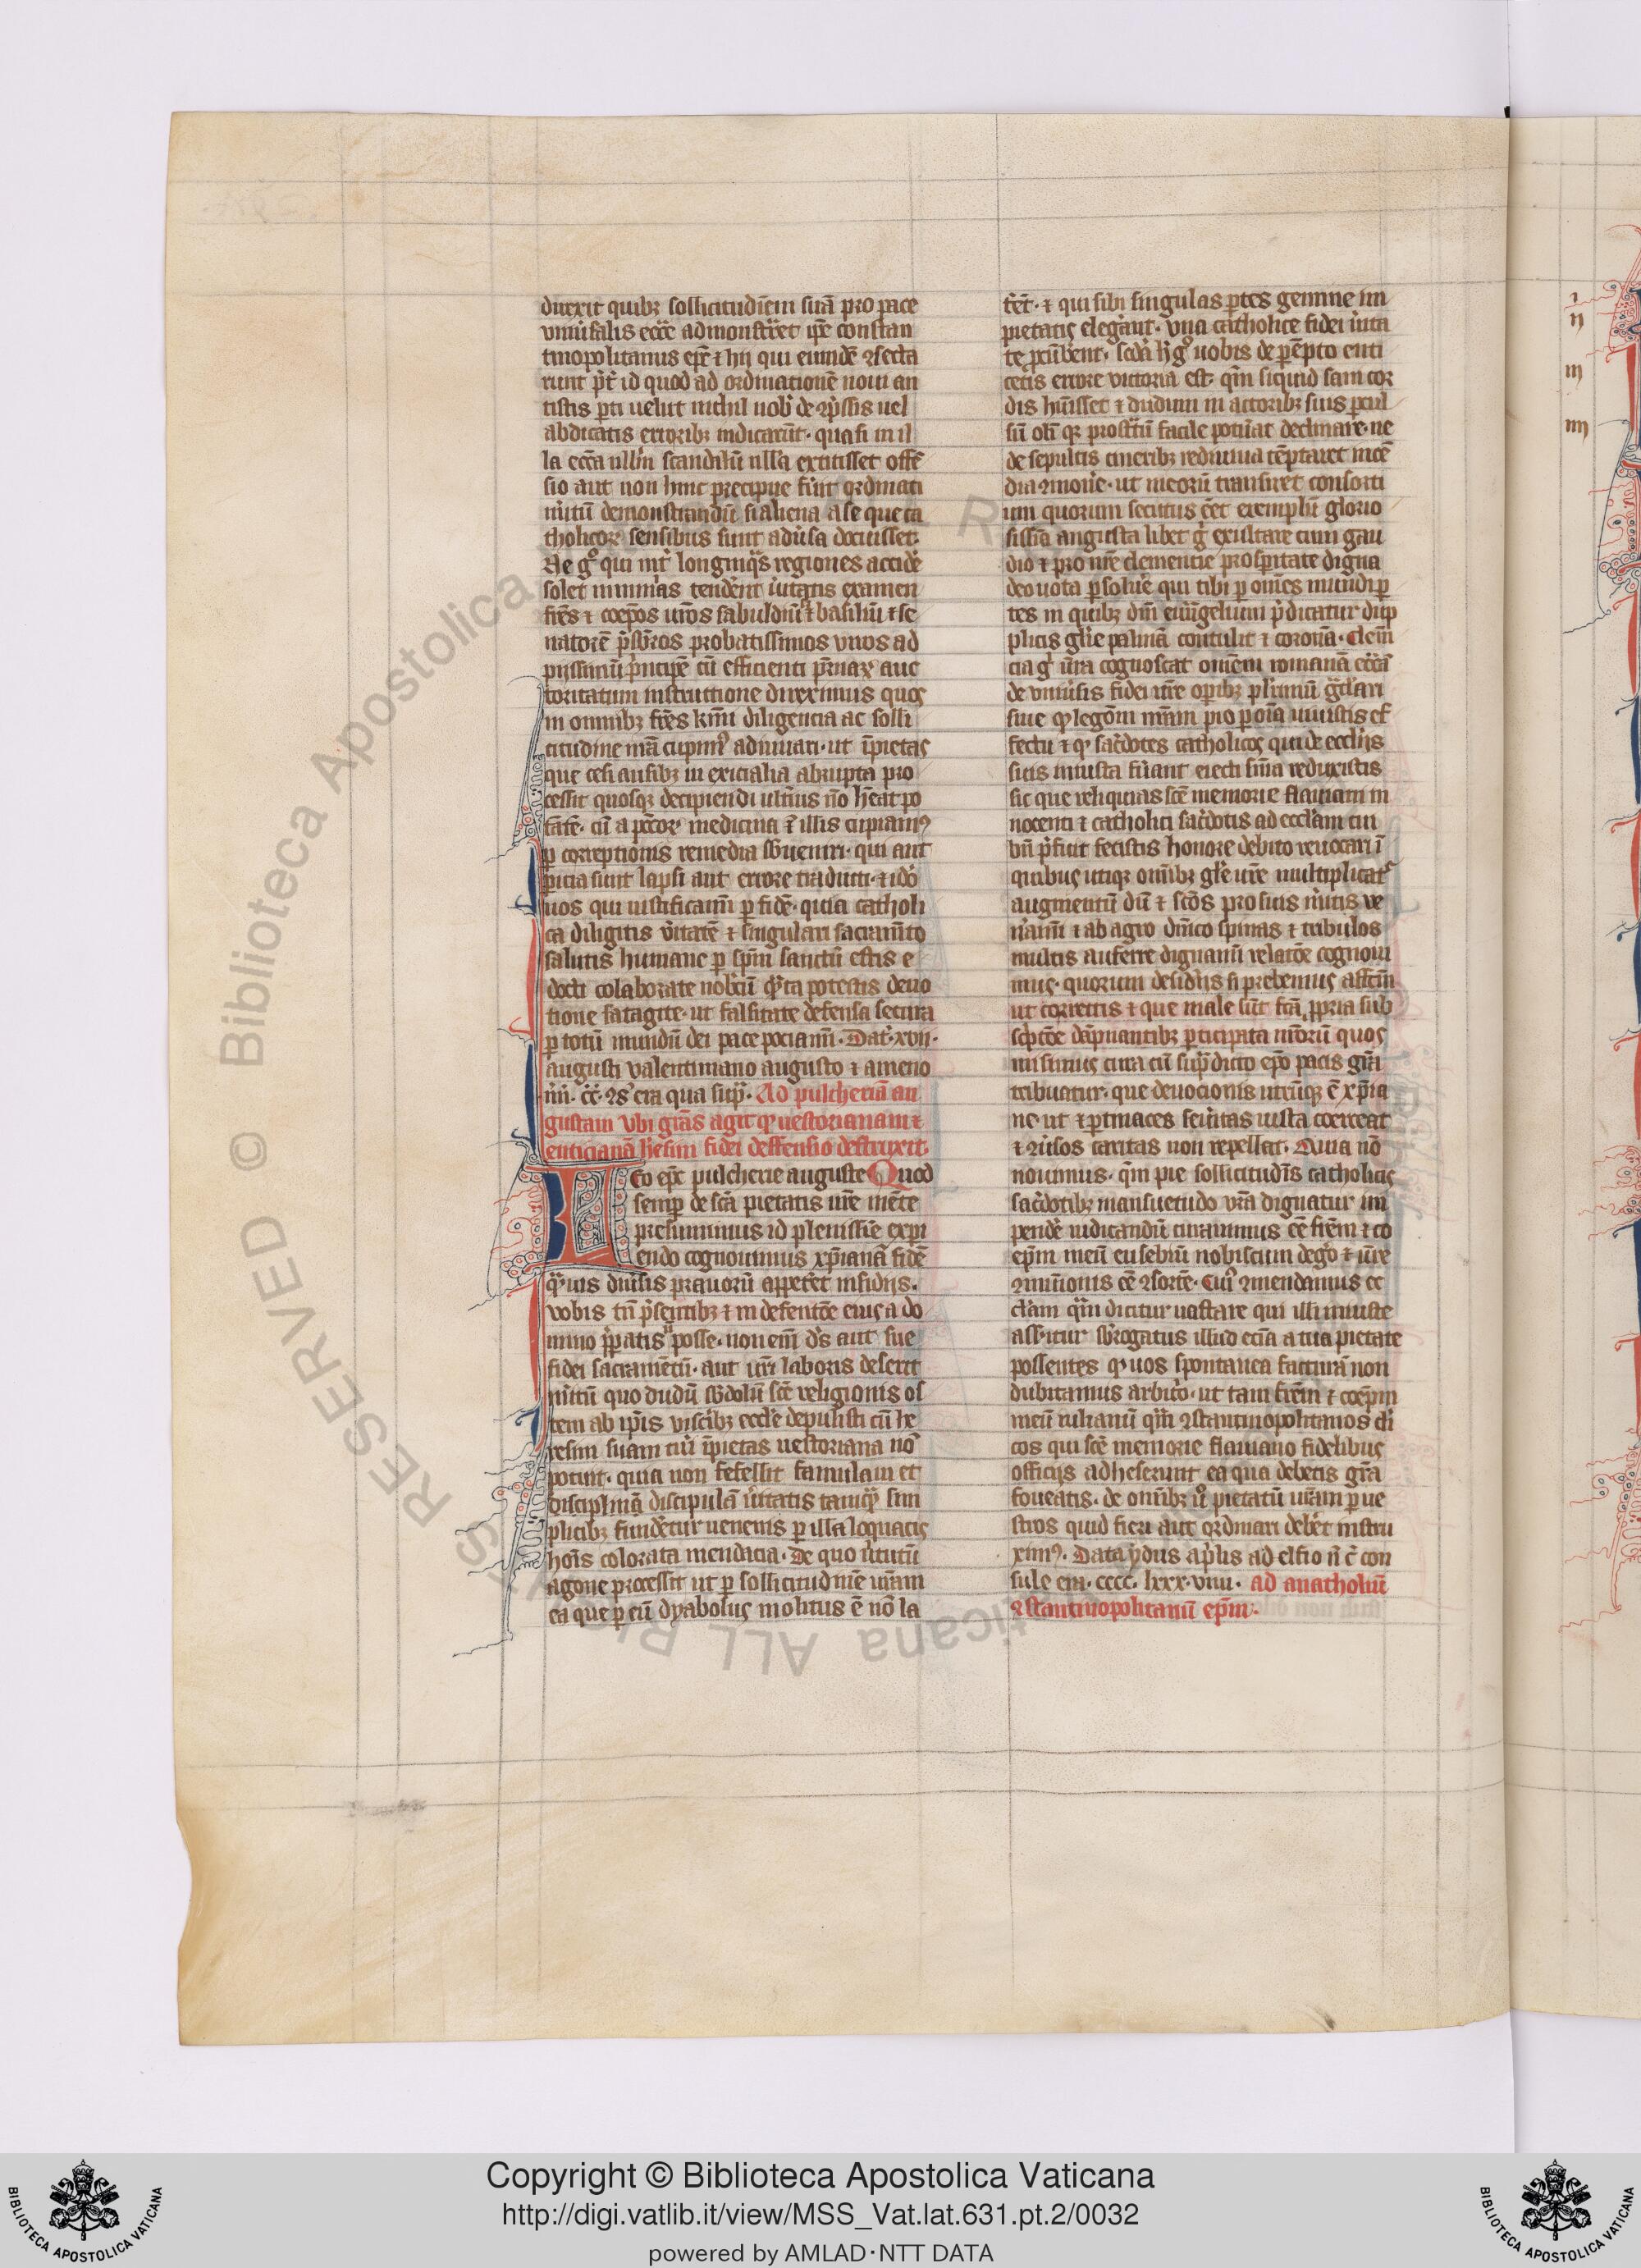 direxit quibꝫ sollicitudīem suā pro pace
vniu̓salis ecc̄e admonstraret ip̄e constan
tinopolitanus ep̄c ⁊ hij qui eundē ꝯsecra
runt p̄t̓ id quod ad ordinationē noui an
tistis ꝑti uelut nichil nob̓ de ꝯp̄ssis uel
abdicatis erroribꝫ indicarūt· quasi in il
la ecc̄a nllm̄ scandalū nlla extitisset offē
sio aut non hinc precipue fu̓nt ordinati
m̓itū demonstrandū si aliena a se que ca
tholicoꝝ sensibus sunt adu̓sa docuisset.
Ne gͦ qui int̓ longinqͣs regiones accidē
solet nimias tendēnt iu̓tatis examen
fr̄es ⁊ coep̄os nr̄os fabuldiū ⁊ basiliū ⁊ se
natorē p̄sb̓ros probatissimos viros ad
pijssimū p̓ncipē cū efficienti pr̄naꝝ auc
toritatum instructione direximus quos
in omnibꝫ fr̄es km̄i diligencia ac solli
citudine nr̄ā cupimꝰ adiuuari· ut īpietas
que cesi ausibꝫ in exicialia abrupta pro
cessit quosqꝫ decipiendi ult̓ius nō hēat po
t̄atē· cū a pc̄coꝝ medicina ē illis cupiamꝰ
ꝑ correptionis remedia sb̓ueniri· qui aut
ꝑicia sunt lapsi aut errore traducti· ⁊ idō
uos qui iustificam̄ ꝑ fidē· quia catholi
ca diligitis v̓itatē ⁊ singulari sacram̄to
salutis humane ꝑ sp̄m sanctū estis e
docti colaborate nobcū qͣnta potestis deuo
tione satagite· ut falsitate defensa secura
ꝑ totū mundū dei pace pociam̄. Dat̓· xvii·
augusti valentiniano augusto ⁊ auieno
v̓ii· c̄c̄· ꝯs̓ era qua supͣ. Ad pulcheriā au
gustam vbi grās agit qͥ nestorianam ⁊
euticianā h̓esim fidei deffensio destruxerit.
Leo ep̄c pulcherie auguste Quod
semꝑ de sc̄a pietatis ur̄e mēte
presumimus id plenissīe expi
endo cognouimus xp̄ianā fidē
qͣmuis diu̓sis prauorū appetēt insidijs.
vobis tn̄ p̄sentibꝫ ⁊ in defentōe eius a do
mino p̄ꝑatis posse· non em̄ ds̄ aut sue
fidei sacramētū· aut ur̄i laboris deserit
m̓itū quo dudū sb̓dolū sc̄e religionis os
tem ab ip̄is viscibꝫ eccl̄e depulisti cū he
resim suam tū̓ īpietas nestoriana nō
potuit. quia non fefellit famulam et
discipl̄inā discipulā u̓itatis tamqͣ sim
plicibꝫ funderetur uenenis ꝑ illa loquacis
hoīs colorata mendacia. De quo u̓tutū
agone processit ut ꝑ sollicitudinē ur̄am
ea que ꝑ eū dyabolus molitus ē nō la
t̓et̄· ⁊ qui sibi singulas ꝑtes gemine im
pietatis elegērant. vna catholice fidei u̓ita
te ꝑcūb̓ent. scd̄a lig̓ gͦ uobis de ꝑēpto euti
cetis errore victoria est· qm̄ siquid sani cor
dis hūisset ⁊ dudum in actoribꝫ suis ꝑcul
sū oli qꝫ prostͣtū facile potu̓at declinare· ne
de sepultis cineribꝫ rediuiua tēptaret incē
dia ꝯmoūe· ut meorū transiret consorti
um quorum secutus eēt exemplū glorio
sissīa augusta libet gͦ exultare cum gau
dio ⁊ pro nr̄e clemencie prosꝑitate digna
deo uota ꝑsolūe qui tibi ꝑ omēs mundi ꝑ
tes in quibꝫ dn̄i euu̓ngelium p̄dicatur dup
plicis gl̄ie palmā contulit ⁊ coronā· Clem̄
cia gͦ ur̄a cognoscat omēm romanā ecc̄ā
de vniu̓sis fidei ur̄e oꝑibꝫ pl̄imū gͣtlari
siue qͥ legōm nr̄am pio ꝑ oīa iuuistis ef
fectu ⁊ qͥ sac̓dotes catholicos qui de ecclijs
suis iniusta fu̓ant eiecti sn̄īa reduxistis
sic que reliquias sc̄e memorie flauiani in
nocenti ⁊ catholici sac̓dotis ad eccl̄am cui
bn̄ p̓fuit fecistis honore debito reuocari ī
quibus utiqꝫ omībꝫ gl̄e ur̄e multiplicatͬ
augmentū dū ⁊ sc̄os pro suis m̓itis ve
n̓ami ⁊ ab agro dn̄ico spinas ⁊ tribulos
multis auferre dignam̄ relatōe cognoui
mus· quorum desidijs si prebemus assēm
ut correctis ⁊ que male sūt fc̄a ꝓpria sub
scp̄tōe dāpnantibꝫ ꝑticipata nr̄orū quos
misimus cura cū supͣdicto ep̄o pacis gr̄a
tribuatur· que deuocionis utriusqꝫ ē xp̄ia
ne· ut ⁊ ꝑtinaces seu̓itas iusta coerceat
⁊ ꝯu̓sos caritas non repellat. Quia nō
nouimus· qm̄ pie sollicitudīs catholicis
sac̓dotibꝫ mansuetudo vr̄a dignatur im
pendē iudicandū curauimus eē fr̄em ⁊ co
ep̄m meū eusebiū nobiscum degō ⁊ nr̄e
ꝯmunionis eē ꝯsortē. Cuiꝰ ꝯmendamus ec
cl̄am qͣm dicitur uastare qui illi iniuste
ass̓itur sb̓rogatus illud etiā a tua pietate
possentes qͥ uos spontanea facturā non
dubitamus arbit̓o. ut tam fr̄em ⁊ coep̄m
meū iulianū qͣm ꝯstantinopolitanos cl̓i
cos qui sc̄e memorie flauiano fidelibus
officijs adheserunt ea qua debetis gr̄a
foueatis. de omībꝫ u̓o pietatū ur̄am ꝑ ue
stros quid fieri aut ordinari deb̓et instru
ximꝰ. Data ydus ap̓lis ad elfio v̄ c̄ con
sule era· cccc· lxxx·viiii· ad anatholiū
ꝯstantinopolitanū ep̄m.
i
ii
iii
iiii
Copyright © Biblioteca Apostolica Vaticana
http://digi.vatlib.it/view/MSS_Vat.lat.631.pt.2/0032
powered by AMLAD·NTT DATA
BIBLIOTECA APOSTOLICA VATICANA
BIBLIOTECA APOSTOLICA VATICANA